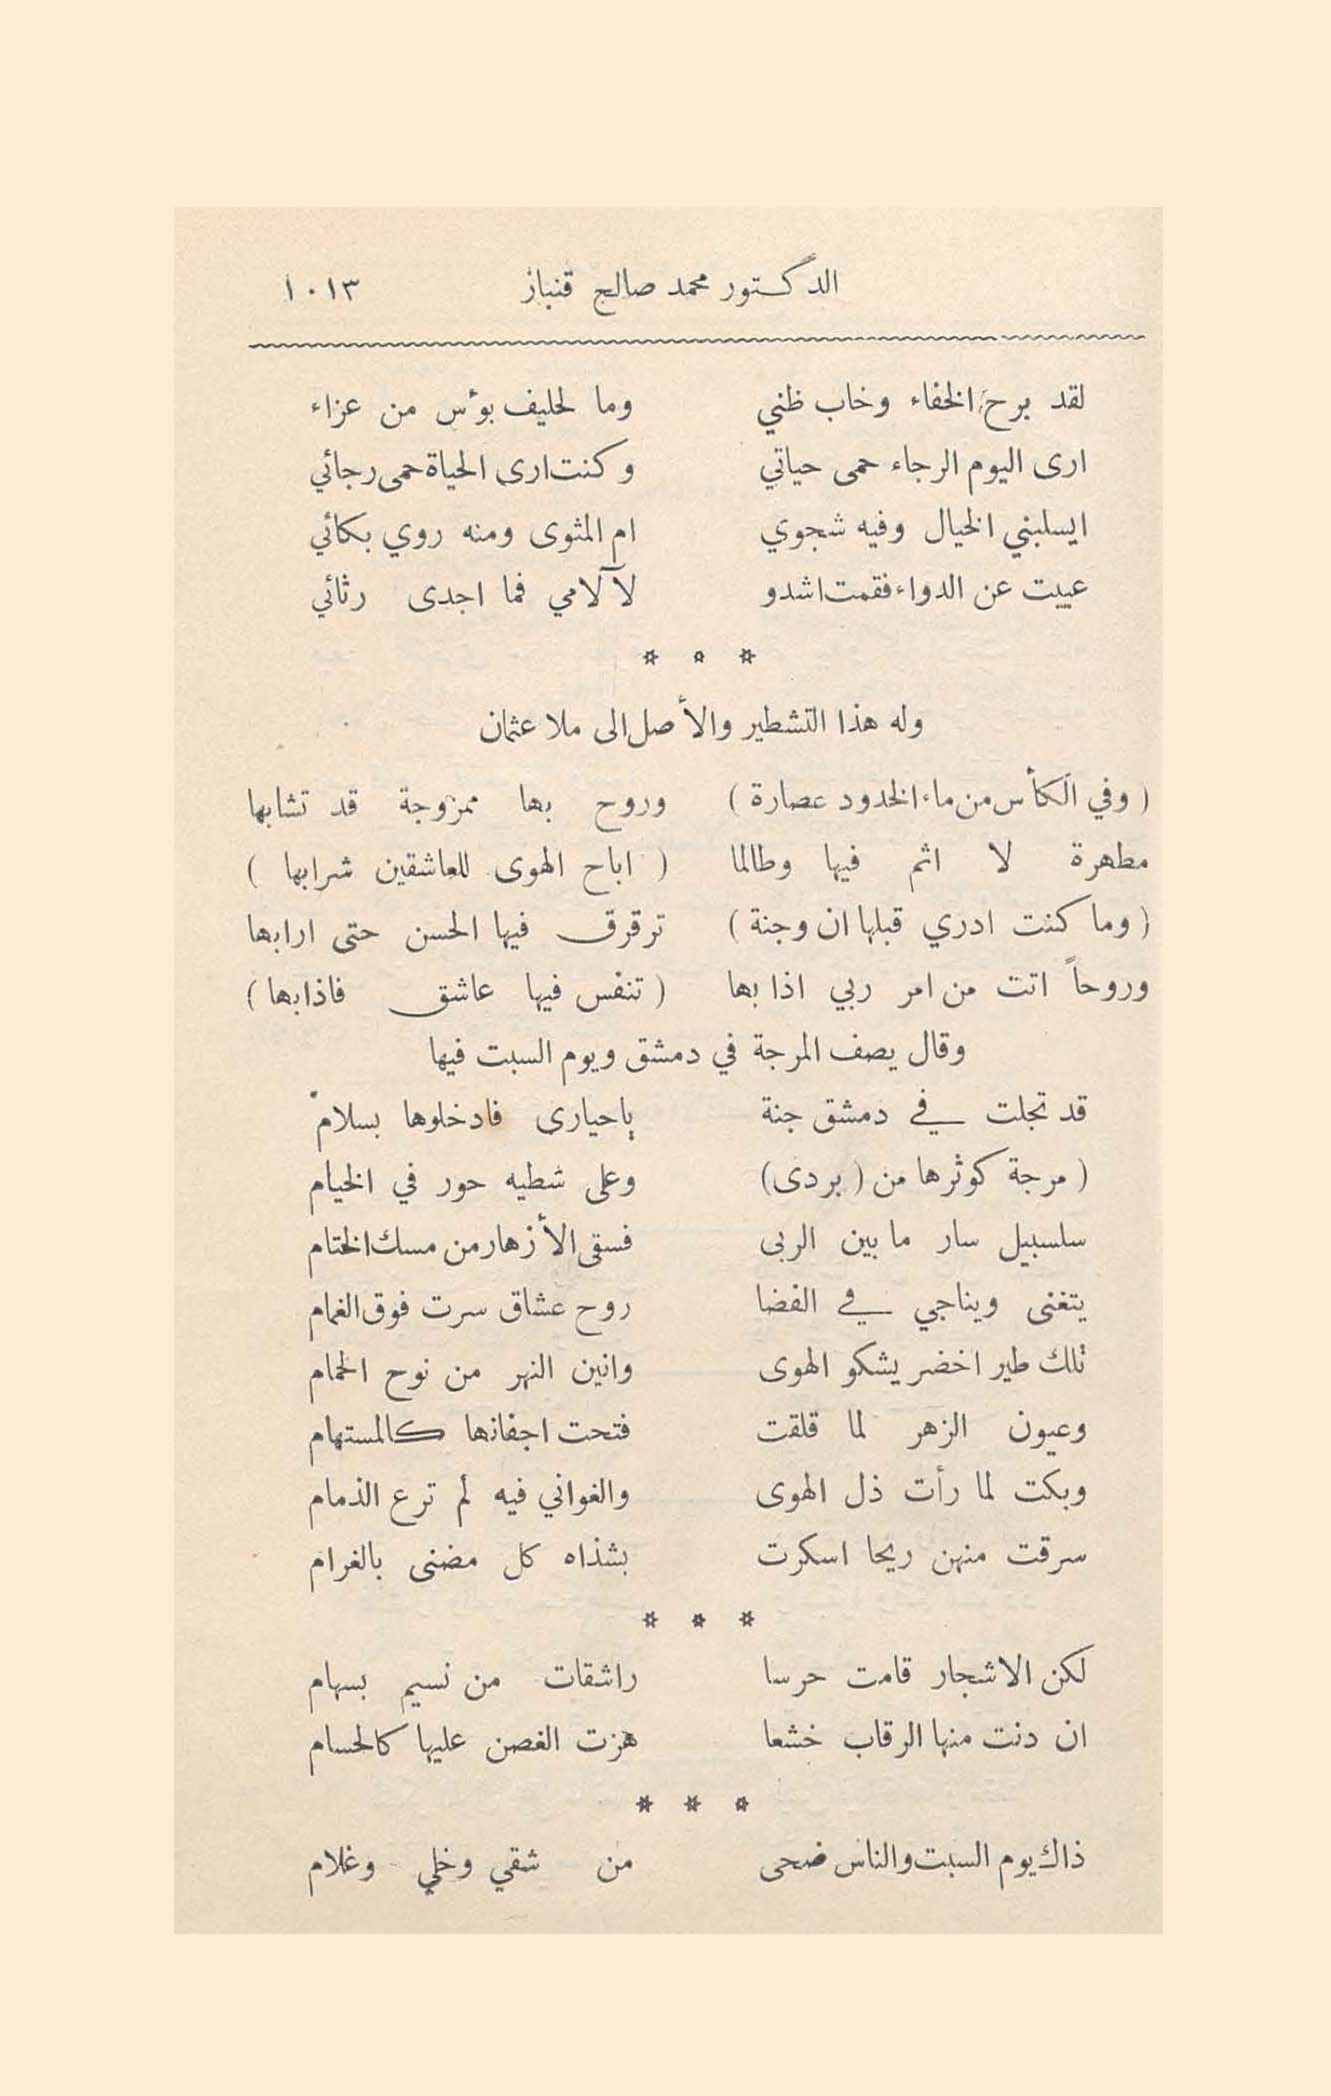 الدكتور محمد صالح قنباز ١٠١٣
لقد برح الخفاء وخاب ظني وما لحليف بوٴس من عزاء
ارى اليوم الرجاء حمى حياتي وكنت ارى الحياة حمى رجائي
ايسلبني الخيال وفيه شجوي ام المثوى ومنه روي بكائي
عييت عن الدواء فقمت اشدو لآلامي فما اجدى رثائي
* * *
وله هذا التشطير والأصل الى ملا عثمان
( وفي الكأس من ماء الخدود عصارة ) وروح بها ممزوجة قد تشابها
مطهرة لا اثم فيها وطالما ( اباح الهوى للعاشقين شرابها )
( وما كنت ادري قبلها ان وجنة ) ترقرق فيها الحسن حتى ارابها
وروحاً اتت من امر ربي اذا بها ( تنفس فيها عاشق فاذابها )
وقال يصف المرجة في دمشق ويوم السبت فيها
قد تجلت في دمشق جنة ياحيارى فادخلوها بسلام
( مرجة كوثرها من ( بردى ) وعلى شطيه حور في الخيام
سلسبيل سار ما بين الربى فسقى الأزهار من مسك الختام
يتغنى ويناجي في الفضا روح عشاق سرت فوق الغمام
تلك طير اخضر يشكو الهوى وانين النهر من نوح الحمام
وعيون الزهر لما قلقت فتحت اجفانها كالمستهام
وبكت لما رأت ذل الهوى والغواني فيه لم ترع الذمام
سرقت منهن ريحا اسكرت بشذاه كل مضنى بالغرام
* * *
لكن الاشجار قامت حرسا راشقات من نسيم بسهام
ان دنت منها الرقاب خشعا هزت الغصن عليها كالحسام
* * *
ذاك يوم السبت والناس ضحى من شقي وخلي وغلام